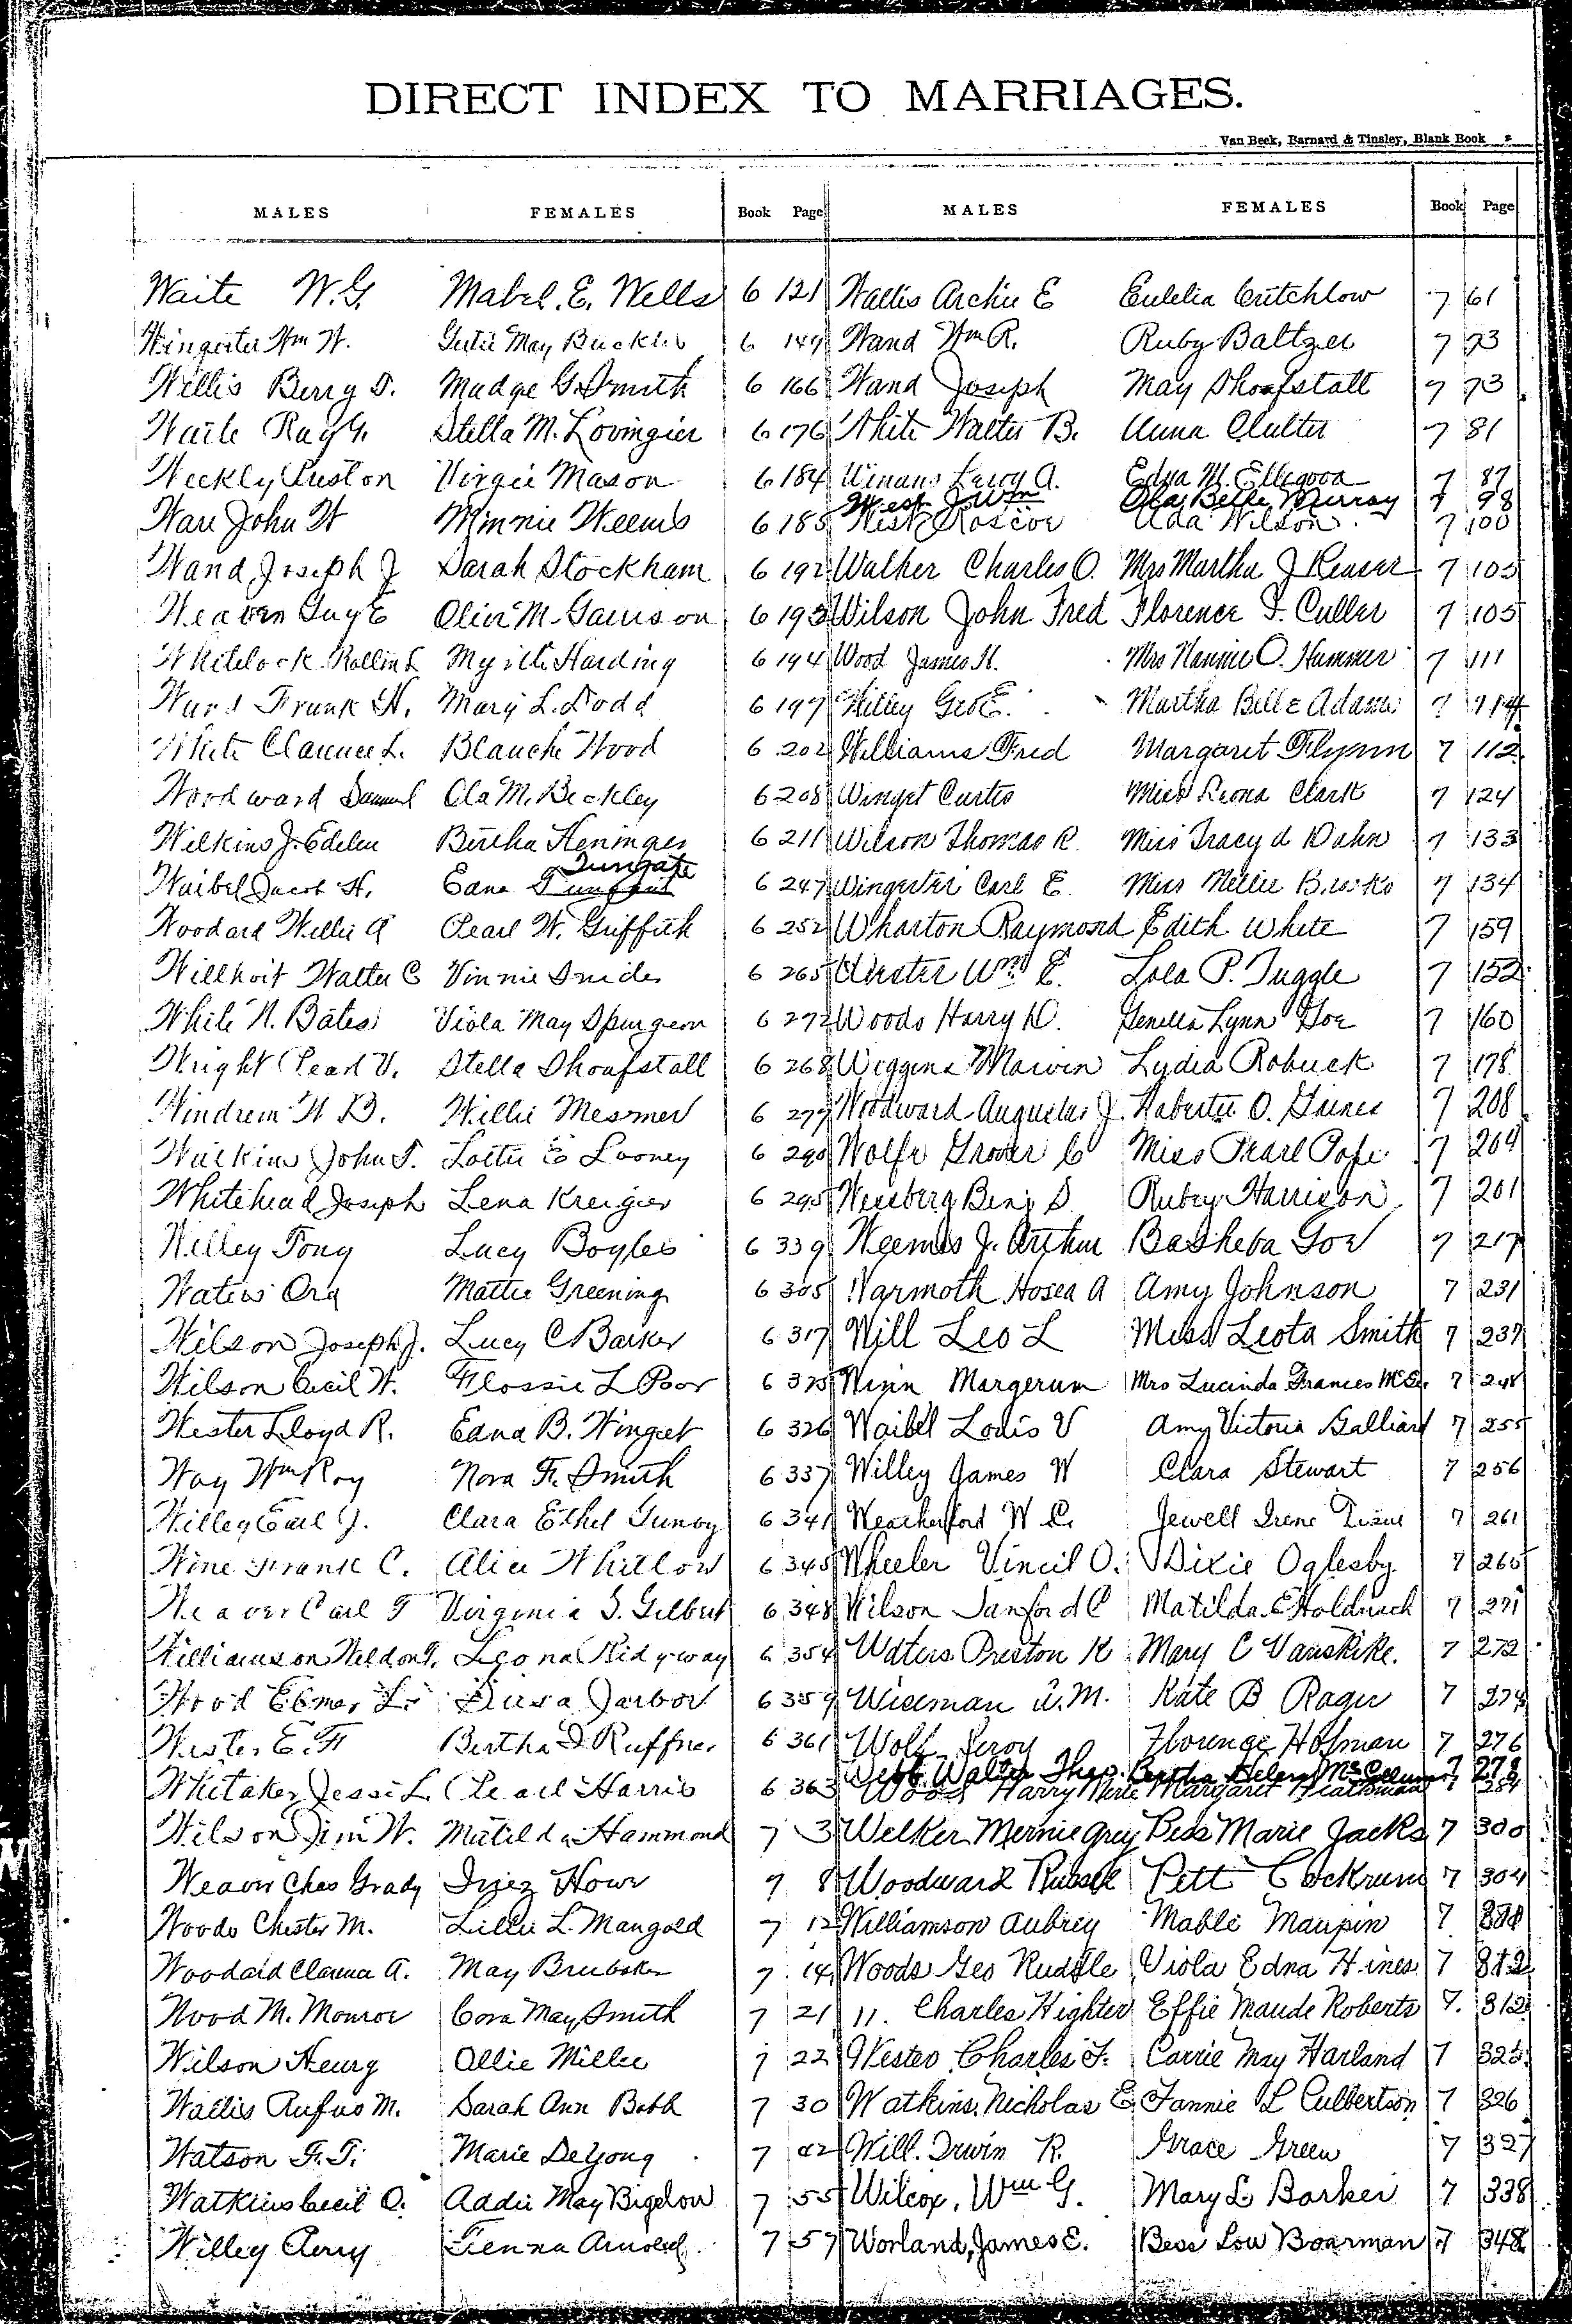 DIRECT INDEX TO MARRIAGES.
Van Beek, Barnard & Tinsley, Blank Book
MALES FEMALES Book Page MALES FEMALES Book Page
Waite W. G. Mabel. E. Wells 6 121
Wingerter Wm W. May 6 149
Willis Berry D. Madge G. Smith 6 166
Waite Ray G. Stella M. Lovingier 6 176
Weekly Preston Virgie Mason 6 184
Ware John W Minnie Weems 6 185
Wand, Joseph J Sarah Stockham 6 192
Weaver Guy E Olive M. Garrison 6 193
Whitelock Rollin L Myrtle Harding 6 194
Ward Frank H. Mary L. Dodd 6 197
White Clarence L. Blanche Wood 6 202
Woodward Samuel Ola M. Beckley 6 208
Wilkins J. Edelen Bertha Heninger 6 211
Waibel Jacob H. Edna Tungate 6 247
Woodard Willie A Pearl W. Griffith 6 252
Willhoit Walter C Vinnie Snider 6 265
White N. Bates Viola May Spurgeon 6 272
Wright Pearl V. Stella Shoafstall 6 268
Windrem W B. Willie Mesmer 6 277
Watkins John T. Lottie E Looney 6 290
Whitehead Joseph Lena Kreigier 6 295
Willey Tony Lucy Boyles 6 339
Waters Ora Mattie Greening 6 305
Wilson Joseph J. Lucy C Barker 6 317
Wilson Cecil W. Flossie L Poor 6 325
Wester Lloyd R. Edna B. Winget 6 326
Way Wm Roy Nora F. Smith 6 337
Willey Earl J. Clara Ethel Gunby 6 341
Wine Frank C. Alice Whitlow 6 345
Weaver Carl T Virginia S. Gilbert 6 348
Williamson Weldon T. Leona Ridgway 6 354
Wood Elmer L. Jarboe 6 359
Wester E. F Bertha D Ruffner 6 361
Whitaker Jessie L Pearl Harris 6 363
Wilson Jim W. Matilda Hammond 7 3
Weaver Chas Grady Inez Howe 7 8
Woods Chester M. Lillie L. Mangold 7 12
Woodard Clarence A. May Brubaker 7 14
Wood M. Monroe Cora May Smith 7 21
Wilson Henry Ollie Miller 7 22
Wallis Rufus M. Sarah Ann Bobb 7 30
Watson F. T. Marie DeYong 7 42
Watkins Cecil O. Addie May Bigelow 7 55
Willey Perry Fenna Arnold 7 57
Wallis Archie E Eulelia Critchlow 7 61
Wand Wm R. Ruby Baltzer 7 73
Wand Joseph May Shoafstall 7 73
White Walter B. Anna Clulter 7 81
Winans Leroy A. Edna M. Ellegood 7 87
West J. Wm Ola Belle Murray 7 98
West Roscoe Ada Wilson 7 100
Walker Charles O. Mrs Martha J 7 105
Wilson John Fred Florence I. Culler 7 105
Wood James H. Mrs Nannie O. Hammer 7 111
Willey Geo E. Martha Belle Adams 7 114
Williams Fred Margaret Flynn 7 112
Winget Curtis Miss Leona Clark 7 124
Wilson Thomas R. Miss Tracy d Dahn 7 133
Wingerter Carl E Miss Nellie 7 134
Wharton Raymond Edith White 7 159
Wm E. Lola P. Tuggle 7 152
Woods Harry D. Lynn Goe 7 160
Wiggins Marvin Lydia Robuck 7 178
Woodward Augustus J. O. Gaines 7 208
Wolfe Grover C Miss Pearl Pope 7 264
Benj S Ruby Harrison 7 201
Weemes J. Arthur Basheba Goe 7 217
Warmoth Hosea A Amy Johnson 7 231
Will Leo L Miss Leota Smith 7 237
Winn Margerum Mrs Lucinda Frances 7 248
Waibel Louis V Amy Victoria Galliard 7 255
Willey James W Clara Stewart 7 256
Weatherford W E. Jewell Irene 7 261
Wheeler Vincil O. Dixie Oglesby 7 265
Wilson Sanford C Matilda E Holdnach 7 271
Waters Preston K Mary C Vanskike. 7 272
Wiseman A. M. Kate B Rager 7 274
Wolf Leroy Florence Holman 7 276
Webb Walter Theo. Bertha Helen McCollum 7 278
Woods Harry Mire Margaret 7 284
Welker Mernie Grey Bess Marie Jacks 7 300
Woodward Russell Pett Cockrum 7 304
Williamson Aubrey Mable Maupin 7
Woods Geo Ruddle Viola Edna Hines 7 312
11. Charles Highter Effie Maude Roberts 7. 312
Wester Charles F. Carrie May Harland 7 325
Watkins, Nicholas E. Fannie L Culbertson 7 326
Will. Irwin R. Grace Green 7 327
Wilcox, Wm G. Mary L. Barker 7 338
Worland, James E. Bess Low Boarman 7 348